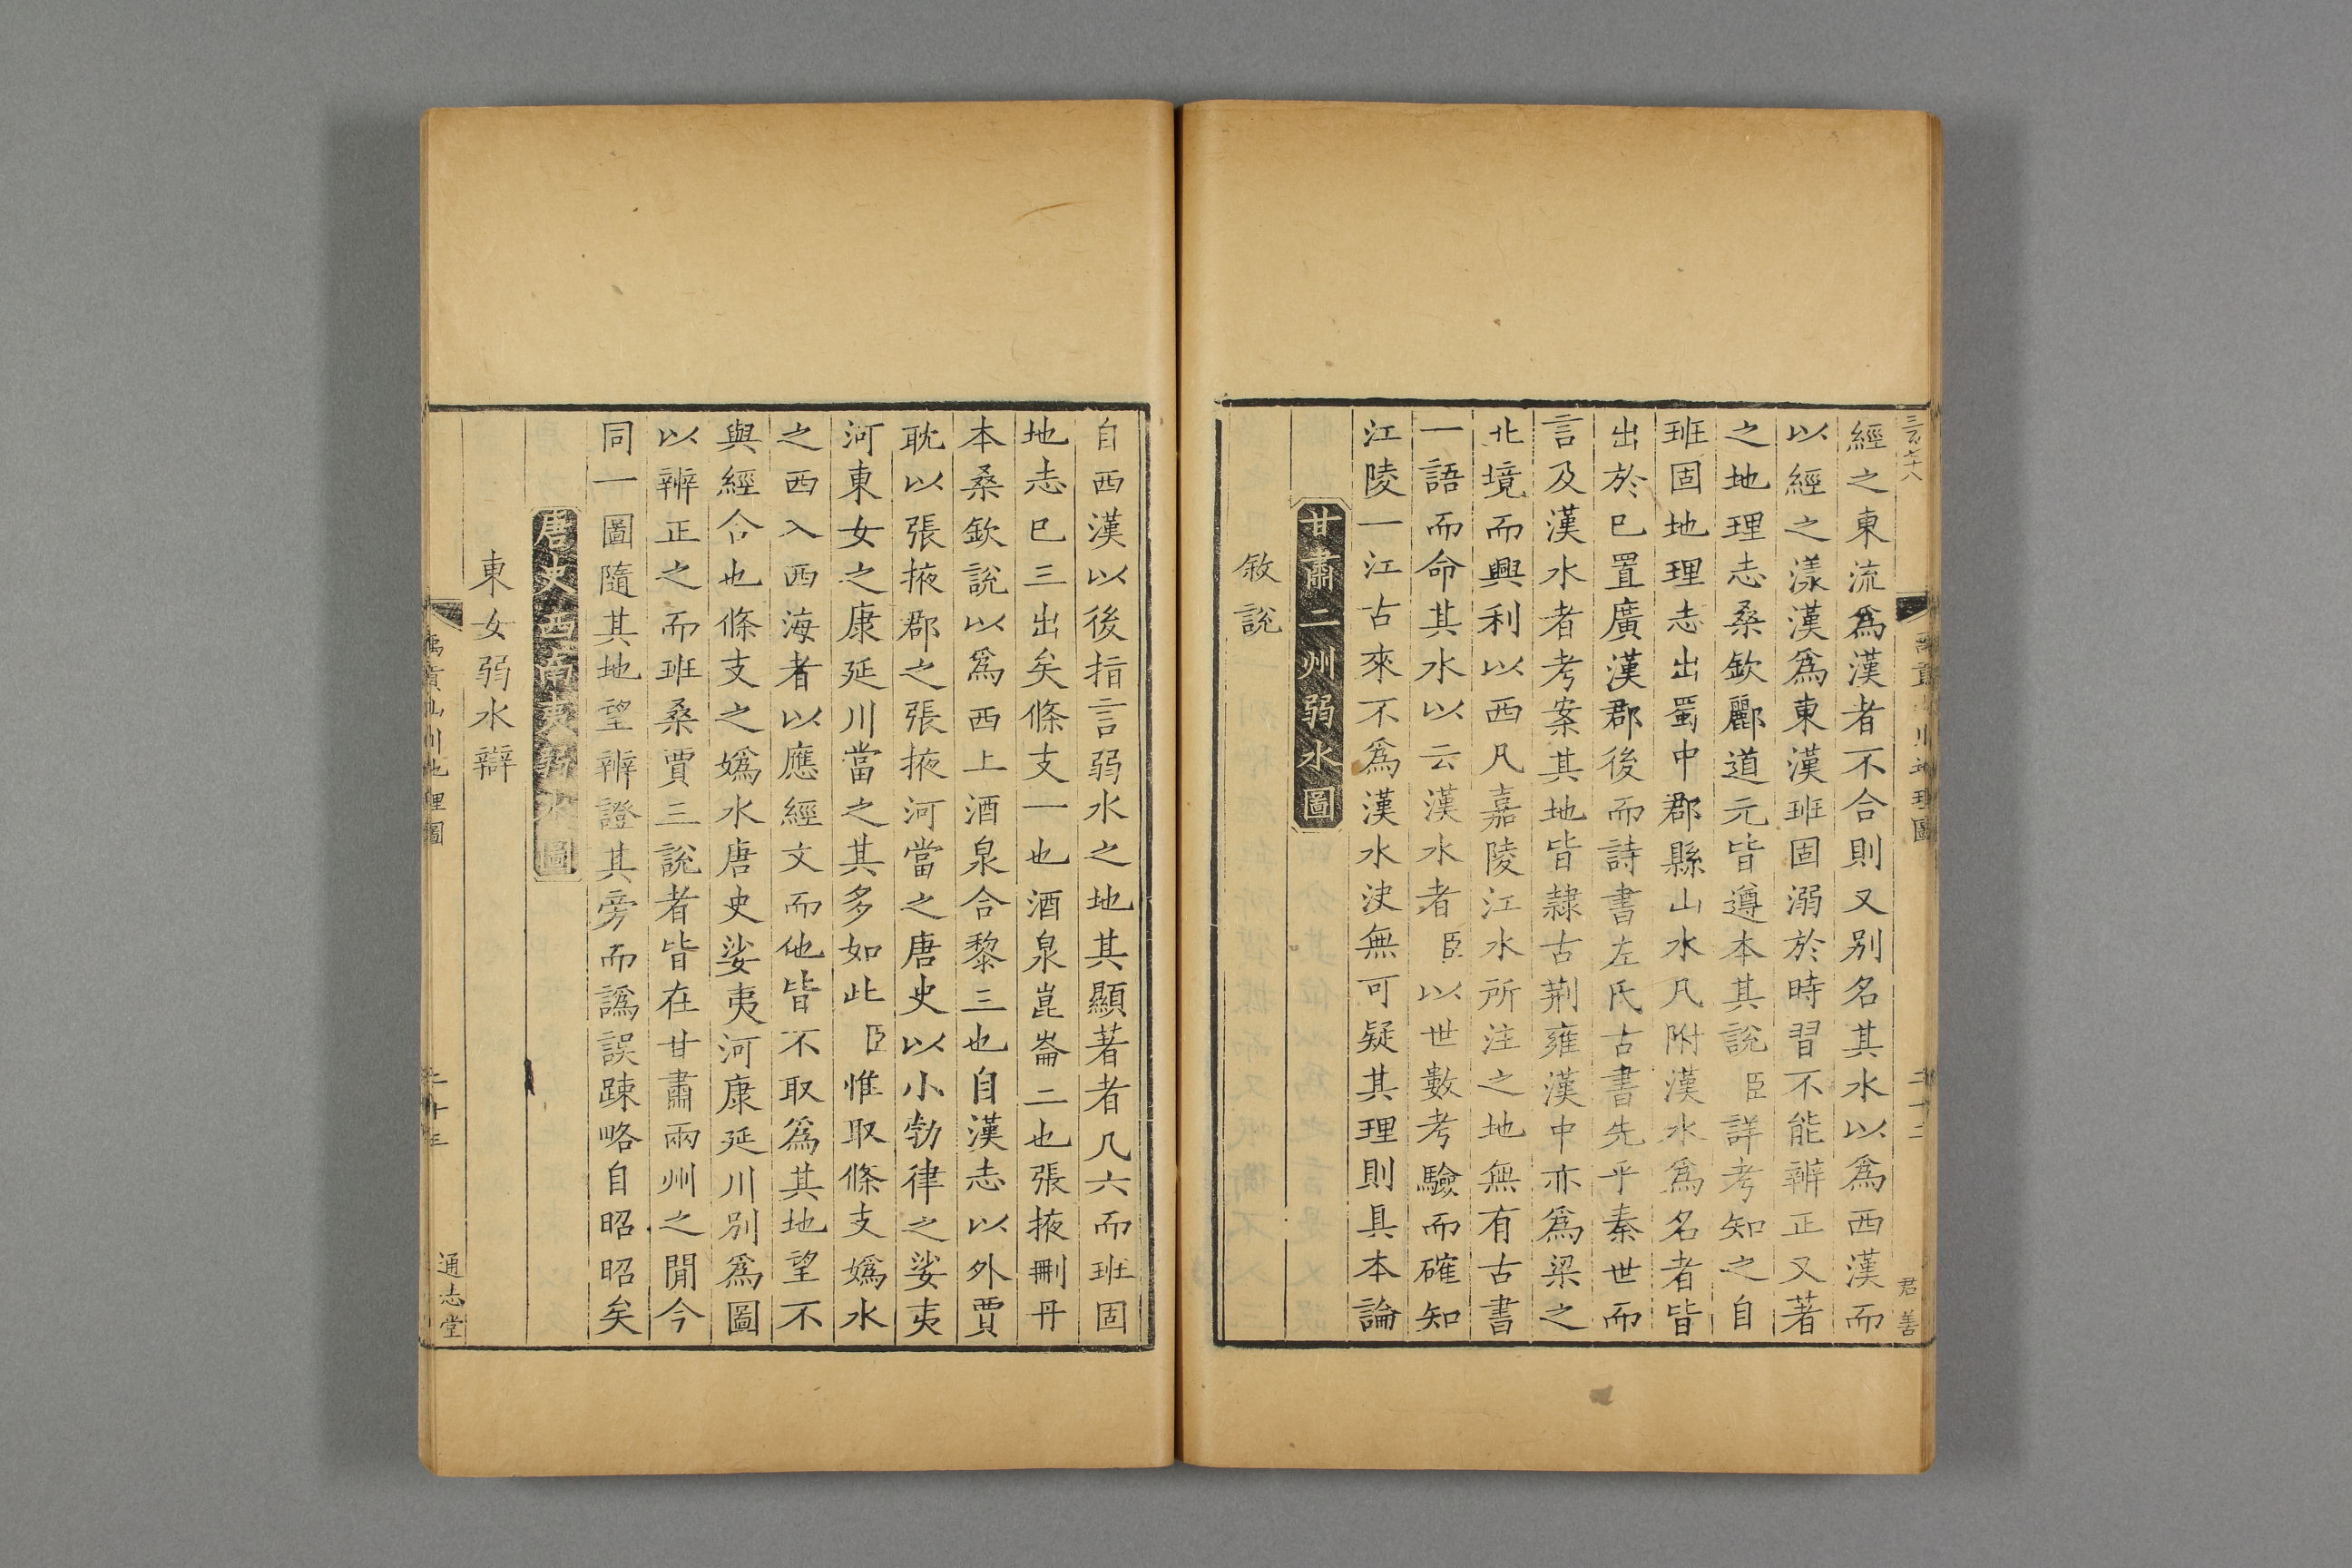 經之東流爲漢者不合則又別名其水以爲西漢而
以經之漾漢爲東漢班固溺於時習不能辨正又著
之地理志桑欽酈道元皆遵本其說臣詳考知之自
班固地理志出蜀中郡縣山水凡附漢水爲名者皆
出於巳置廣漢郡後而詩書左氏古書先乎秦世而
言及漢水者考案其地皆隸古荆雍漢中亦爲梁之
北境而興利以西凡嘉陵江水所注之地無有古書
一語而命其水以云漢水者臣以世數考驗而確知
江陵一江古來不爲漢水決無可疑其理則具本論
甘肅二州弱水圖
敘說
君善
自西漢以後指言弱水之地其顯著者凡六而班固
地志巳三出矣條支一也酒泉崑崙二也張掖刪丹
本桑欽說以爲西上酒泉合黎三也自漢志以外賈
耽以張掖郡之張掖河當之唐史以小勃律之娑夷
河東女之康延川當之其多如此臣惟取條支嬀水
之西入西海者以應經文而他皆不取爲其地望不
與經合也條支之嬀水唐史娑夷河康延川別爲圖
以辨正之而班桑賈三說者皆在甘肅兩州之閒今
同一圖隨其地望辨證其旁而譌誤踈略自昭昭矣
唐史西南夷弱水圖
東女弱水辯
禹貢山川地理圖
通志堂